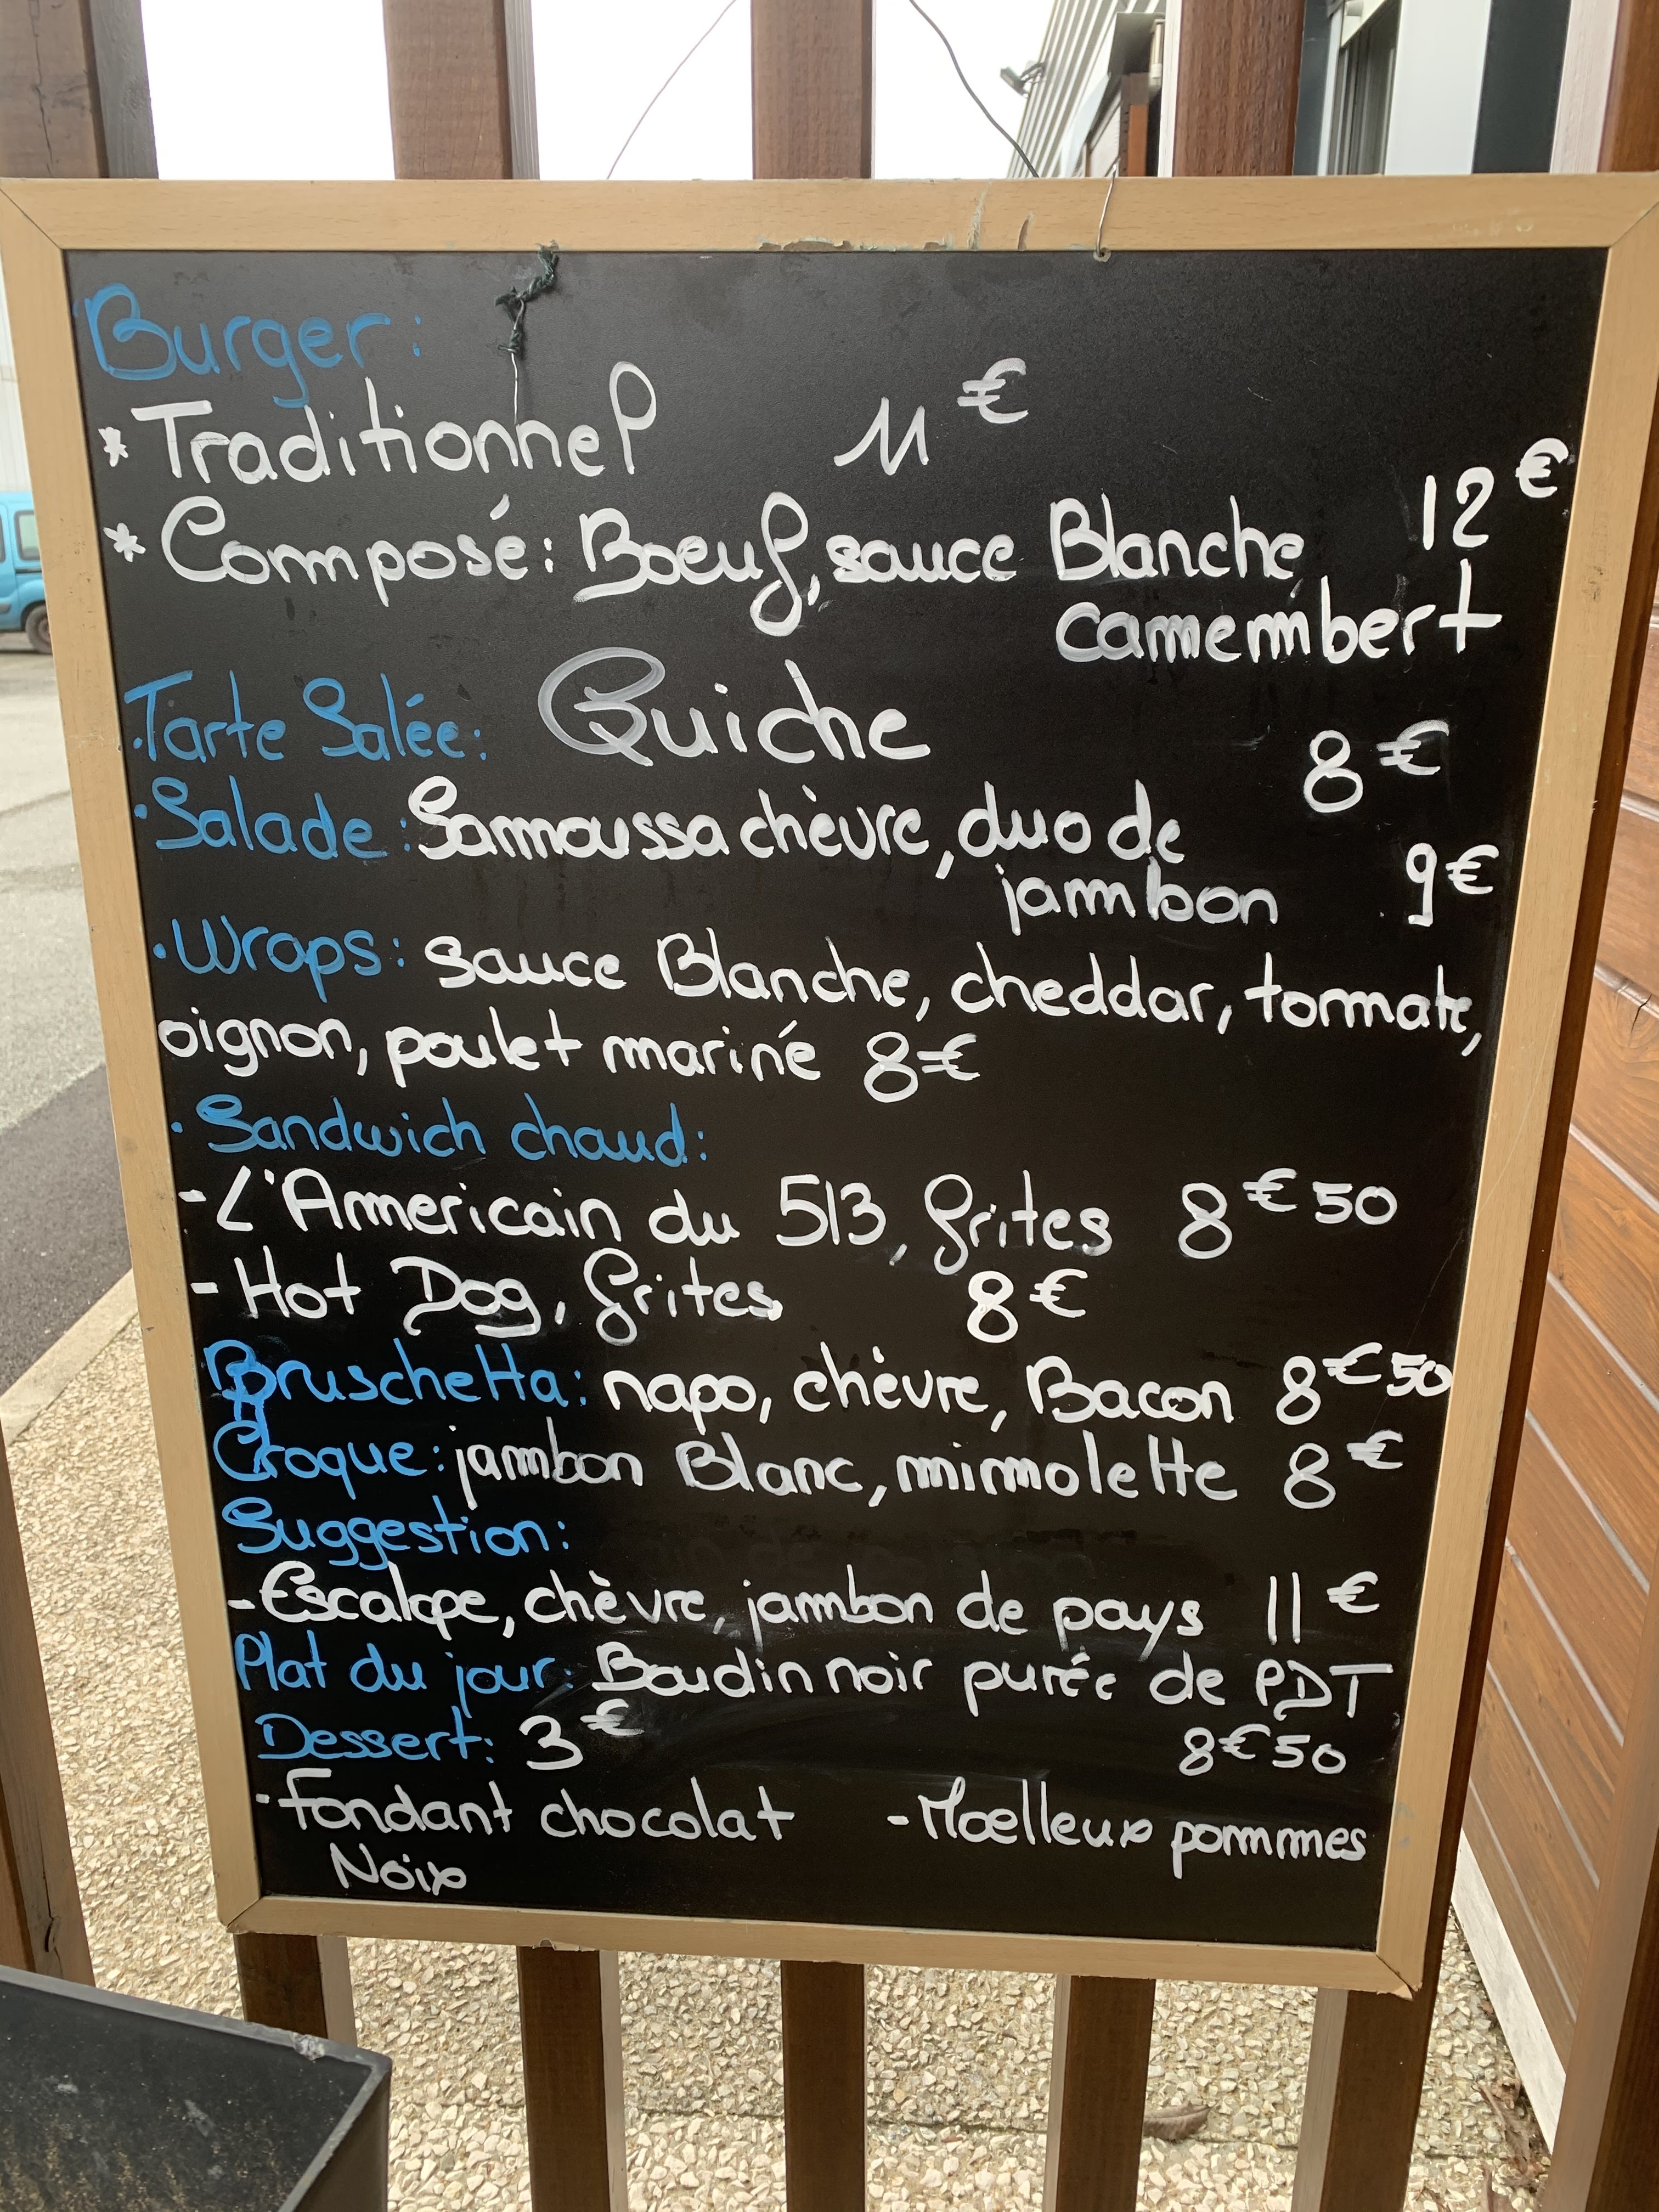 Burger:
* Traditionnel 11€
* Composé: Boeuf, sauce Blanche, 12€
camembert
. Tarte Salée: Quiche 8€
. Salade: Samoussa chèvre, duo de
jambon 9€
. Wraps: sauce Blanche, cheddar, tomate,
oignon, poulet mariné 8€
. Sandwich chaud:
- L'Americain du 513, frites 8€50
- Hot Dog, frites 8€
Bruschetta: napo, chèvre, Bacon 8€50
Croque: jambon Blanc, mimolette 8€
Suggestion:
- Escalope, chèvre, jambon de pays 11€
Plat du jour: Boudin noir purée de PDT
Dessert: 3€ 8€50
- Fondant chocolat - Moelleux pommes
Noix